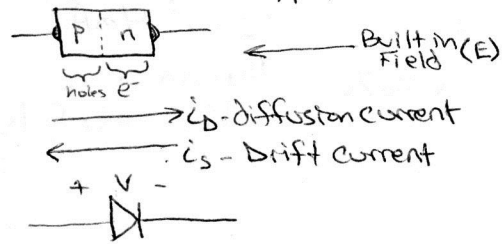 p n
Built in
Field (E)
holes e⁻
i_D - diffusion current
i_s - Drift current
+ V -